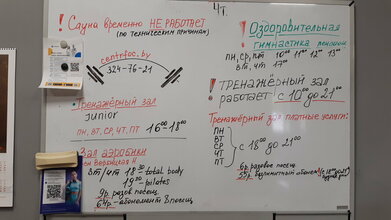 Чт.
! Сауна временно НЕ РАБОТАЕТ
(по техническим причинам)
centrfoc.by
324-76-21
! Тренажёрный зал
junior
ПН, ВТ, СР, ЧТ, ПТ 16⁰⁰-18⁰⁰
! Зал аэробики
вт/чт 18³⁰ - total body
19³⁰ - pilates
9р. разов. посещ.
64р. - абонемент 8 посещ
! Оздоровительная
гимнастика
пн, ср, пт 10⁰⁰ 11⁰⁰ 12⁰⁰ 13⁰⁰
вт, чт 17⁰⁰
! ТРЕНАЖЁРНЫЙ ЗАЛ
работает с 10⁰⁰ до 21⁰⁰
Тренажёрный зал платные услуги:
ПН
ВТ
СР
ЧТ
ПТ
с 18⁰⁰ до 21⁰⁰
6р. разовое посещ.
безлимитный абонем.